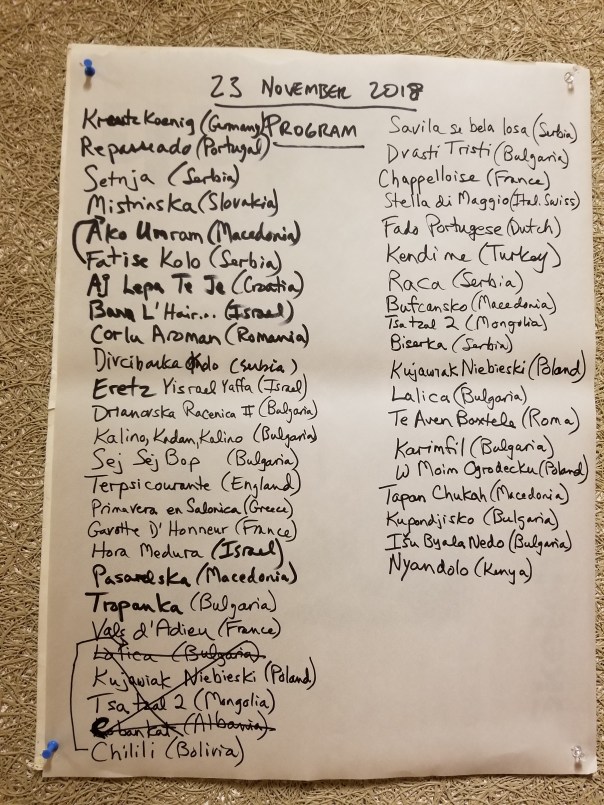 23 NOVEMBER 2018
PROGRAM
Kreutz Koenig (Germany)
Repasseado (Portugal)
Setnja (Serbia)
Mistrinska (Slovakia)
Ako Umram (Macedonia)
Fatise Kolo (Serbia)
Aj Lepa Te Je (Croatia)
Bana L'Hair... (Israel)
Corlu Aroman (Romania)
Divcibarka (Serbia)
Eretz Yisrael Yaffa (Israel)
Drianovska Racenica II (Bulgaria)
Kalino, Kadam, Kalino (Bulgaria)
Sej Sej Bop (Bulgaria)
Terpsicourante (England)
Primavera en Salonica (Greece)
Gavotte D'Honneur (France)
Hora Medura (Israel)
Pasarelska (Macedonia)
Tropanka (Bulgaria)
Vals d'Adieu (France)
Lalica (Bulgaria)
Kujawiak Niebieski (Poland)
Tsa tsal 2 (Mongolia)
(Albania)
Chilili (Bolivia)
Savila se bela losa (Serbia)
Drasti Tristi (Bulgaria)
Chappelloise (France)
Stella di Maggio (Ital. Swiss)
Fado Portugese (Dutch)
Kendime (Turkey)
Raca (Serbia)
Bufcansko (Macedonia)
Tsa tsal 2 (Mongolia)
Biserka (Serbia)
Kujawiak Niebieski (Poland)
Lalica (Bulgaria)
Te Aven Baxtela (Roma)
Karimfil (Bulgaria)
W Moim Ogrodecku (Poland)
Tapan Chukah (Macedonia)
Kupondjisko (Bulgaria)
Isu Byala Nedo (Bulgaria)
Nyandolo (Kenya)